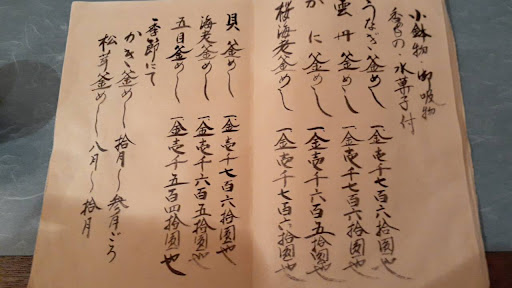 小鉢物・御吸物
香もの・水菓子付
うなぎ釜めし 一金壱千七百六拾圓也
雲丹釜めし 一金壱千七百六拾圓也
かに釜めし 一金壱千六百五拾圓也
桜海老釜めし 一金壱千七百六拾圓也
貝釜めし 一金壱千七百六拾圓也
海老釜めし 一金壱千六百五拾圓也
五目釜めし 一金壱千五百四拾圓也
季節にて
かき釜めし 拾月〜参月ごろ
松茸釜めし 八月〜拾月